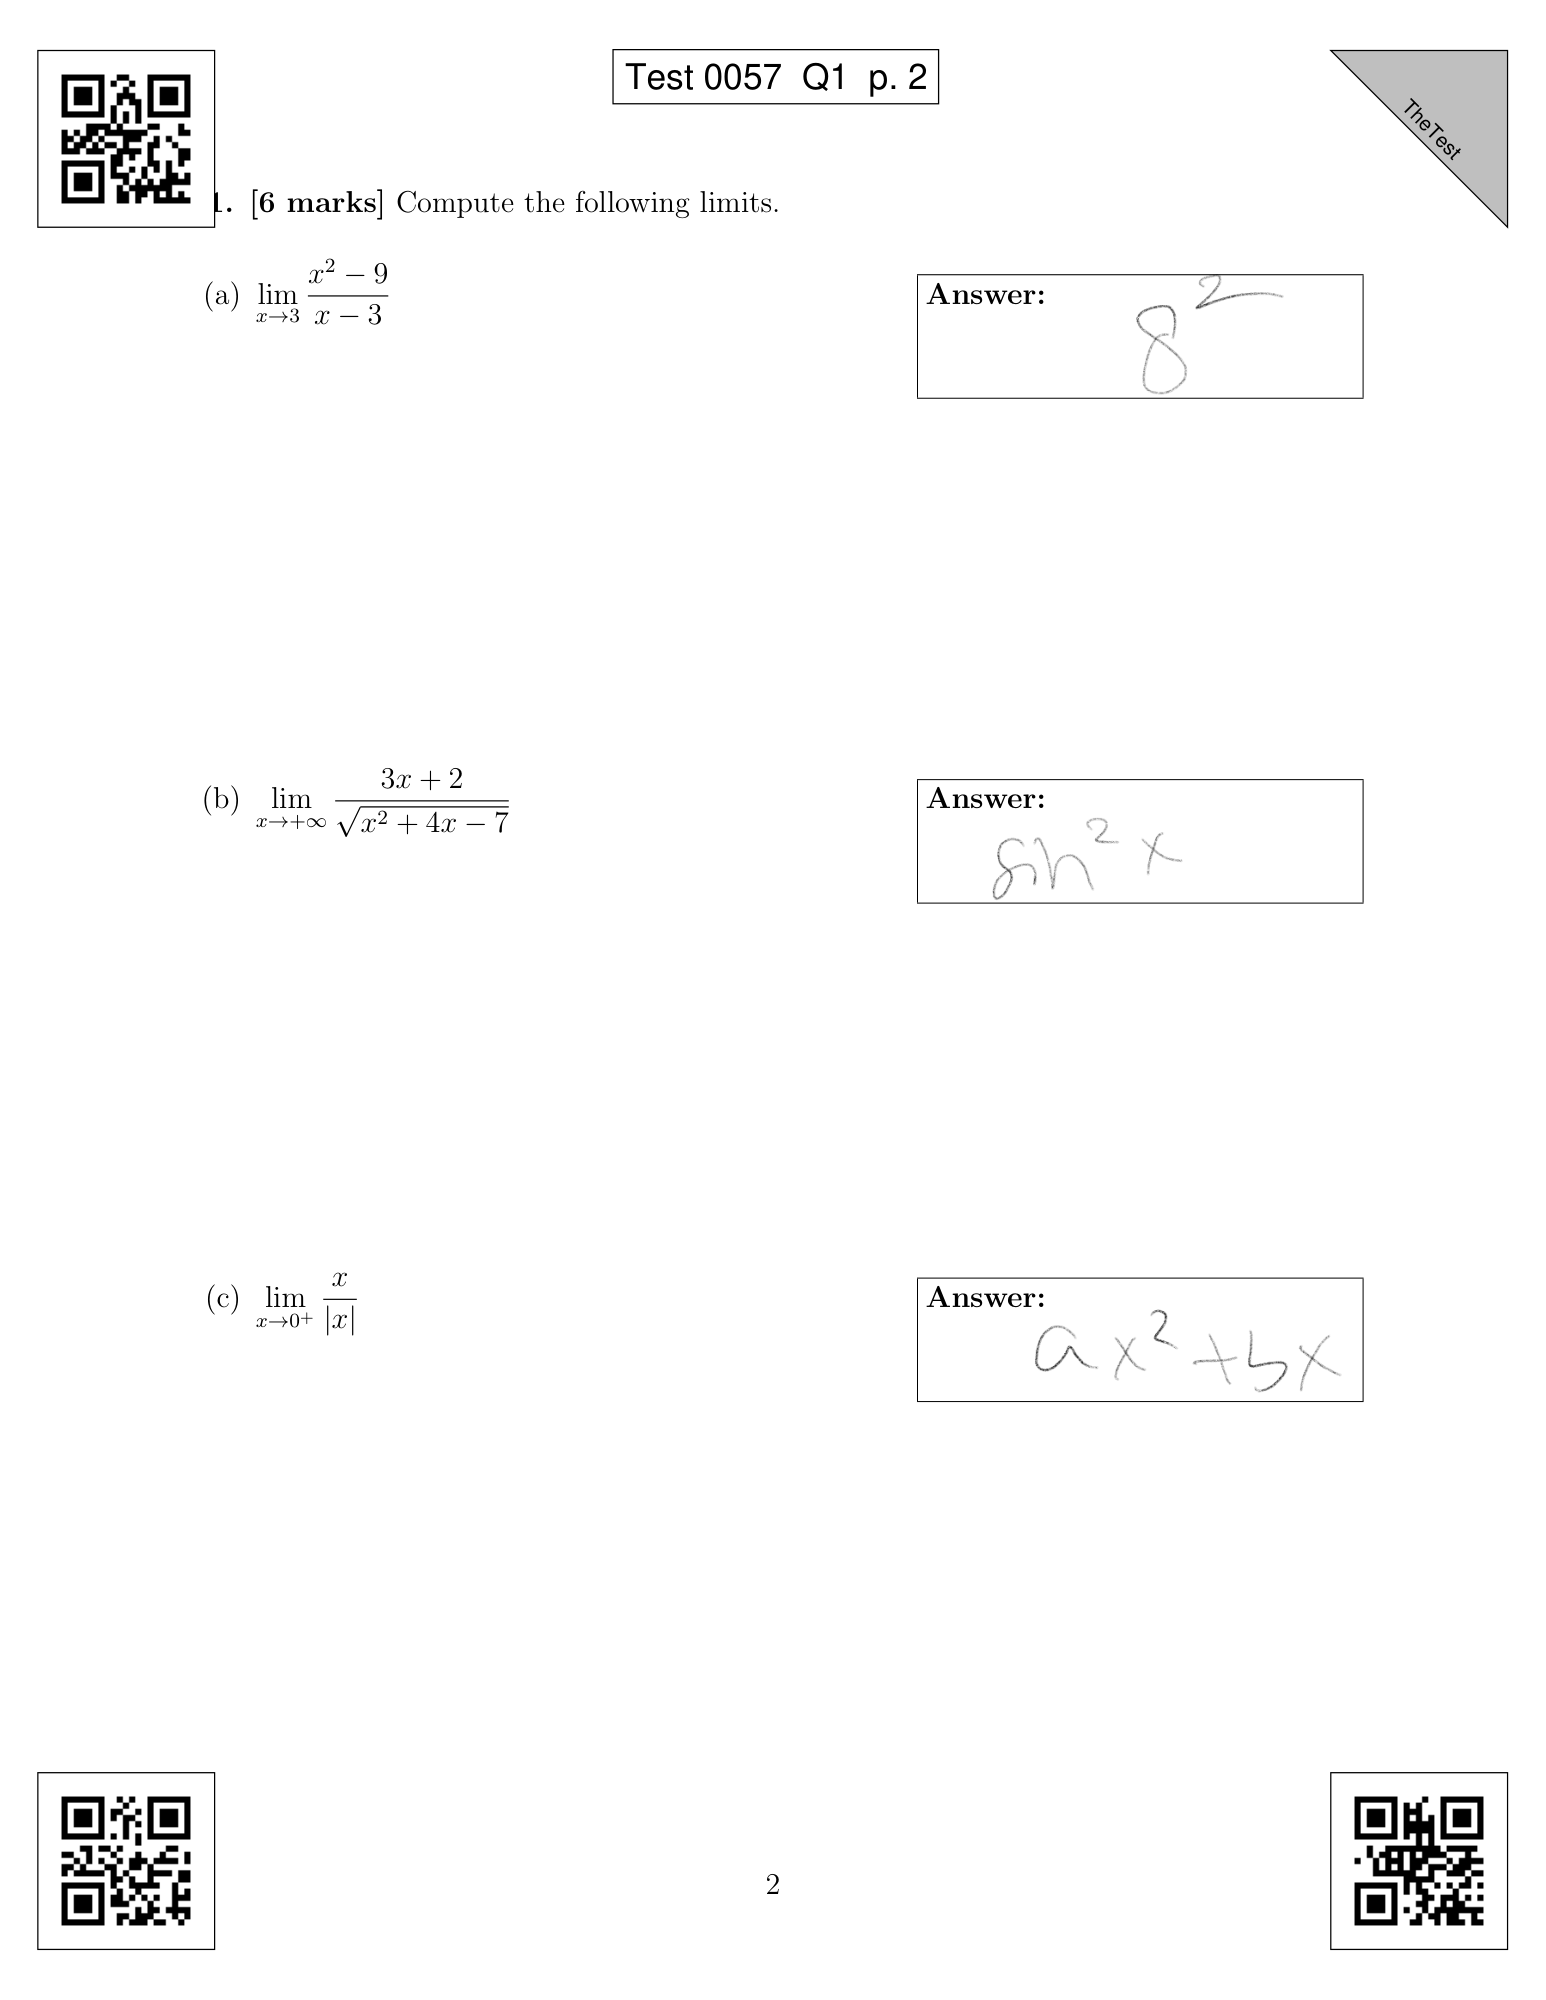 Test 0057 Q1 p. 2
TheTest
1. [6 marks] Compute the following limits.
(a) lim x→3 (x² − 9)/(x − 3)
Answer: 8²
(b) lim x→+∞ (3x + 2)/√(x² + 4x − 7)
Answer: sin² x
(c) lim x→0⁺ x/|x|
Answer: ax² + bx
2